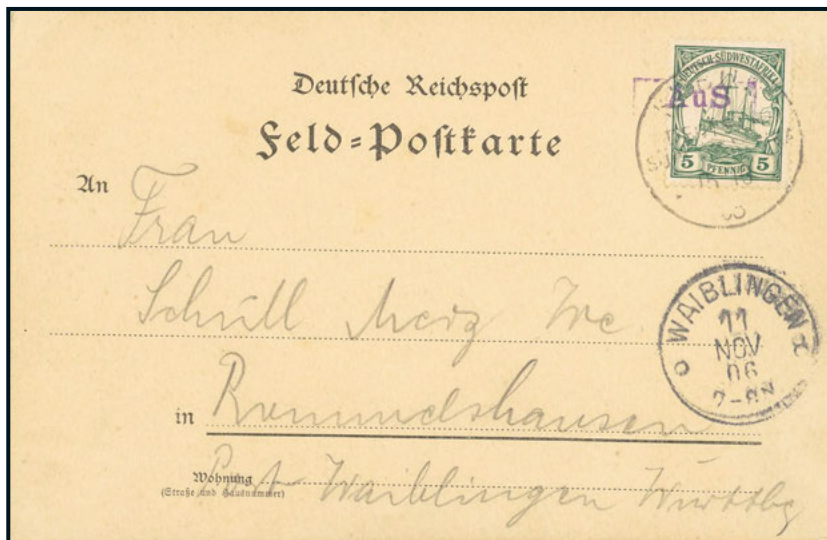 Deutsche Reichspost
Feld=Postkarte
DEUTSCH-SÜDWESTAFRIKA
AuS
5 PFENNIG 5
An Frau
Schüll
WAIBLINGEN
11
NOV
06
7-8N
in Rommelshausen
Wohnung
(Straße und Hausnummer)
Post Waiblingen Württbg